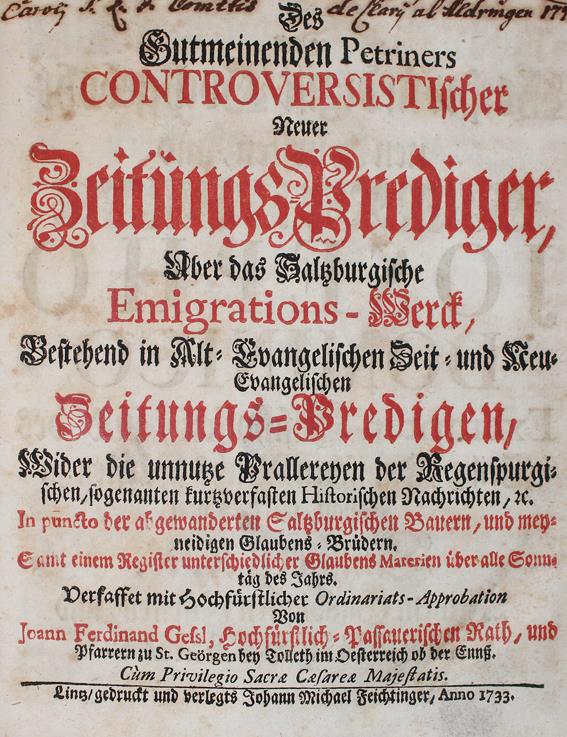 Caroli S. R. I. Comitis de Clary al Aldringen 177
Des
Gutmeinenden Petriners
CONTROVERSISTIscher
Neuer
Zeitungs-Prediger,
Uber das Saltzburgische
Emigrations-Werck,
Bestehend in Alt-Evangelischen Zeit- und Neu-
Evangelischen
Zeitungs-Predigen,
Wider die unnutze Prallereyen der Regenspurgi-
schen/ sogenanten kurtzverfasten Historischen Nachrichten, ꝛc.
In puncto der abgewanderten Saltzburgischen Bauern, und mey-
neidigen Glaubens-Brüdern.
Samt einem Register unterschiedlicher Glaubens Materien über alle Sonn-
täg des Jahrs.
Verfasset mit Hochfürstlicher Ordinariats-Approbation
Von
Joann Ferdinand Geßl, Hochfürstlich-Passauerischen Rath, und
Pfarrern zu St. Geörgen bey Tolleth im Oesterreich ob der Ennß.
Cùm Privilegio Sacræ Cæsareæ Majestatis.
Lintz/ gedruckt und verlegts Johann Michael Feichtinger, Anno 1733.